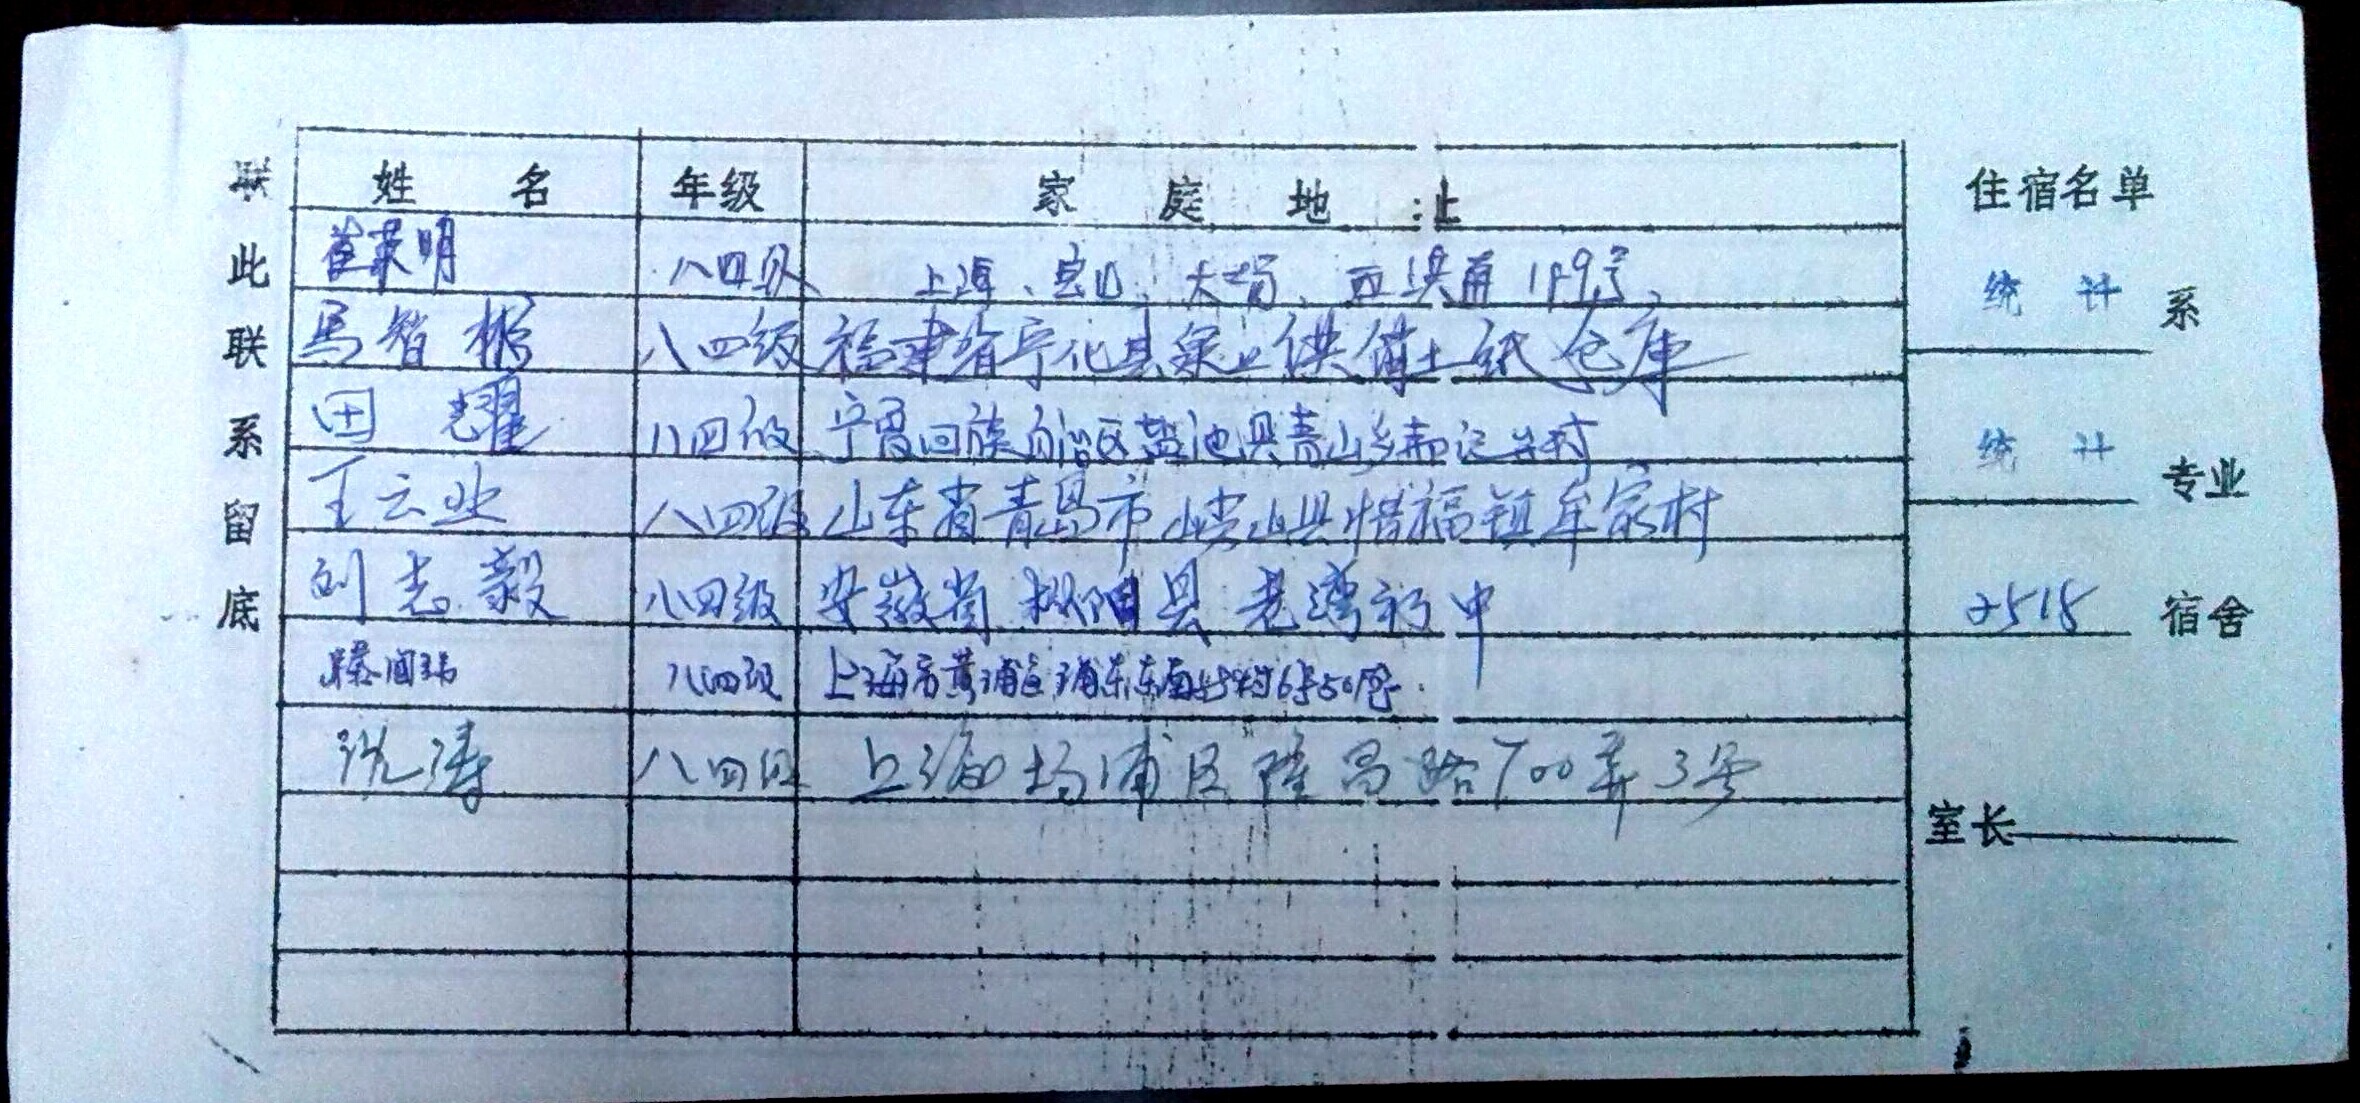 联此联系留底
姓 名 年级 家 庭 地 址
崔英明 八四级 上海、宝山、大场、西洪南199号、
马智彬 八四级 福建省宁化县泉上供销土纸仓库
田耀 八四级 宁夏回族自治区盐池县青山乡
王云业 八四级 山东省青岛市崂山县惜福镇牟家村
刘志毅 八四级 安徽省枞阳县老湾初中
滕国玮 八四级 上海市黄浦区浦东东南
沈涛 八四级 上海杨浦区隆昌路700弄3号
住宿名单
统计 系
统计 专业
2515 宿舍
室长